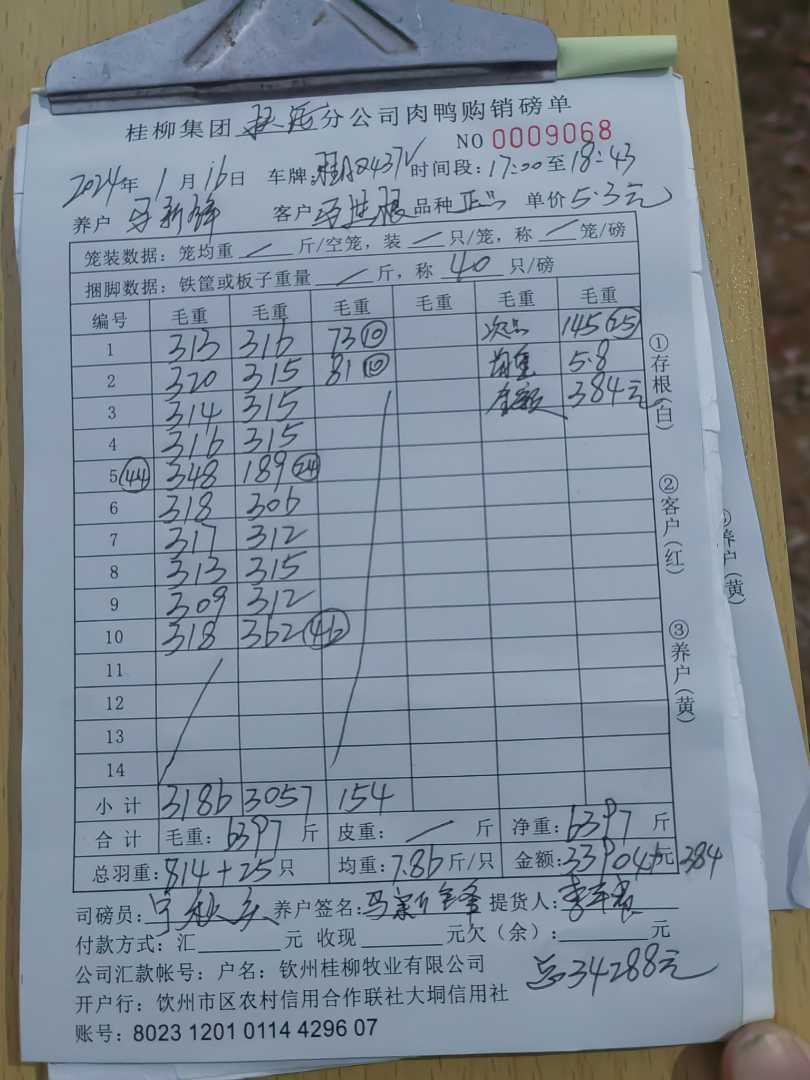 桂柳集团 分公司肉鸭购销磅单
NO 0009068
2024年 1月16日 车牌: 时间段:17:00至18:43
养户 客户 品种 正品 单价 5.3元
笼装数据:笼均重 / 斤/空笼,装 / 只/笼,称 / 笼/磅
捆脚数据:铁筐或板子重量 / 斤,称 40 只/磅
编号 毛重 毛重 毛重 毛重 毛重 毛重
1 313 316 73⑩ 次品 145㉕
2 320 315 81⑩ 均重 5.8
3 314 315 金额 384元
4 316 315
5㊹ 348 189㉔
6 318 306
7 317 312
8 313 315
9 309 312
10 318 362㊻
11
12
13
14
小计 3186 3057 154
合计 毛重:6397斤 皮重: / 斤 净重:6397斤
总羽重:814+25只 均重:7.86斤/只 金额:33904元 384
司磅员: 养户签名: 提货人:
付款方式:汇 元 收现 元欠(余): 元
公司汇款帐号:户名:钦州桂柳牧业有限公司
总34288元
开户行:钦州市区农村信用合作联社大垌信用社
账号:8023 1201 0114 4296 07
①存根(白)
②客户(红)
③养户(黄)
养户(黄)